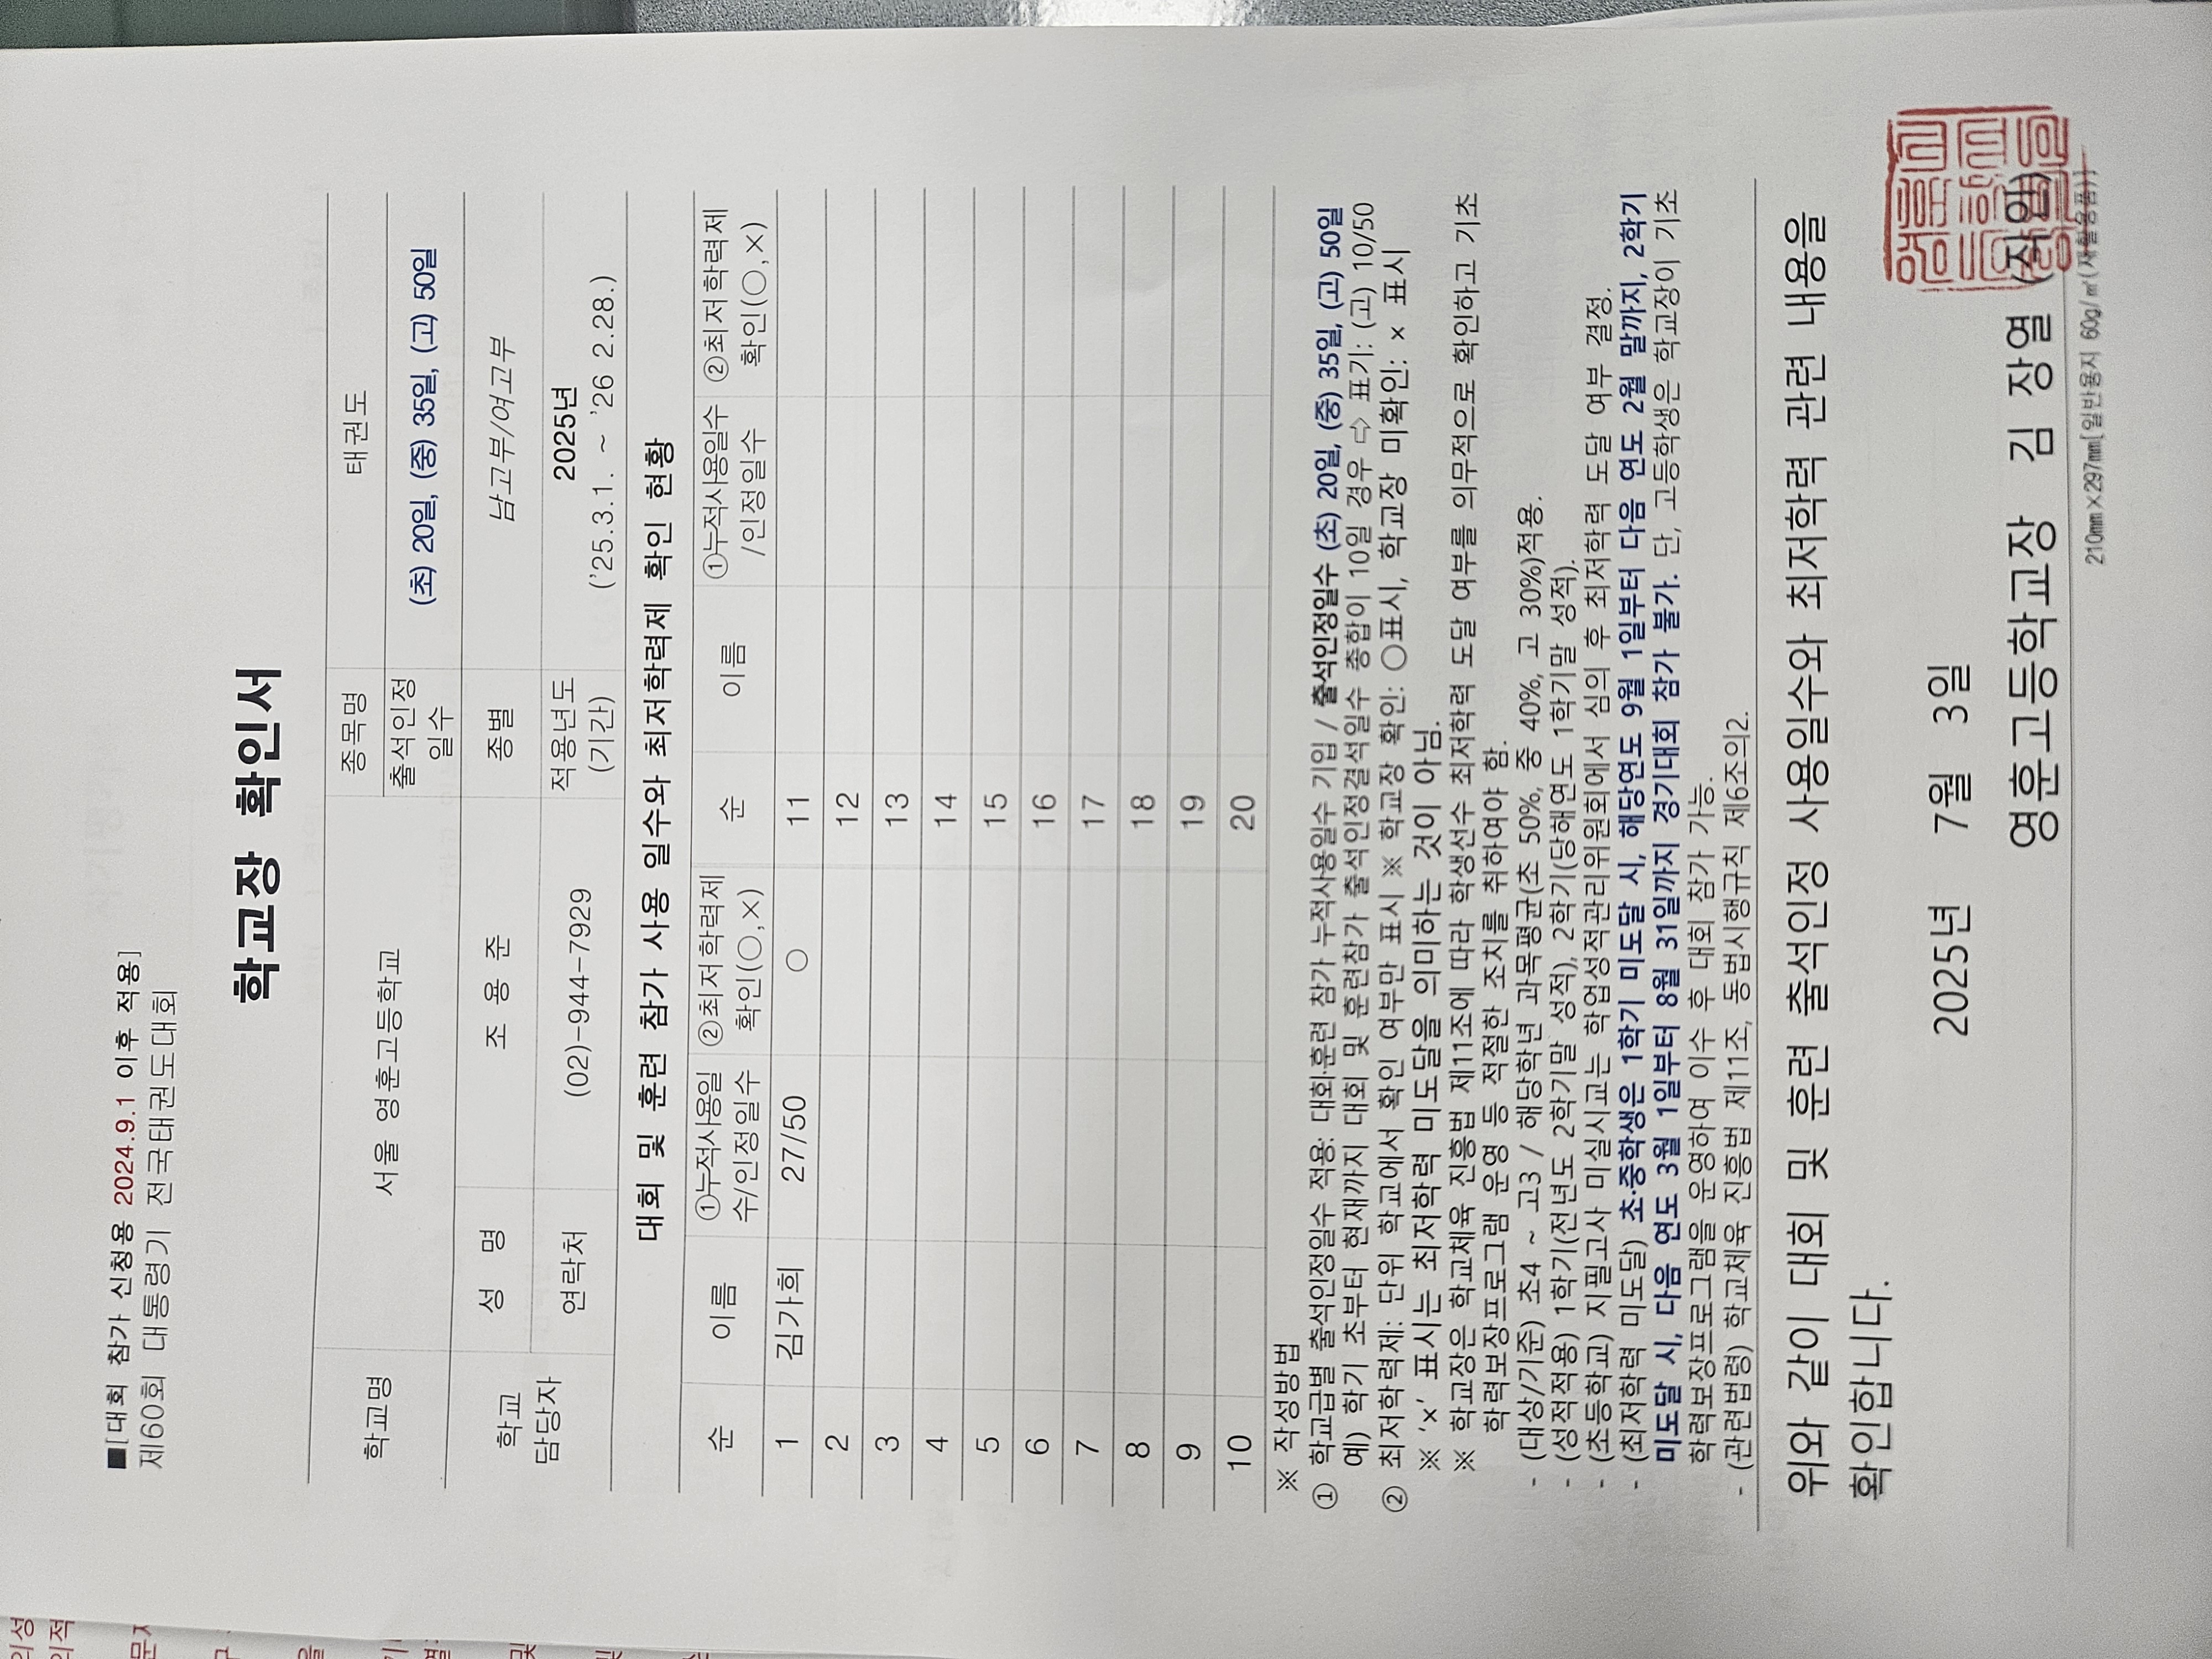 ■[대회 참가 신청용 2024.9.1 이후 적용]
제60회 대통령기 전국태권도대회
학교장 확인서
학교명 서울 영훈고등학교 종목명 태권도
출석인정일수 (초) 20일, (중) 35일, (고) 50일
학교 담당자 성 명 조 용 준 종별 남고부/여고부
연락처 (02)-944-7929 적용년도 (기간) 2025년 ('25.3.1. ~ '26 2.28.)
대회 및 훈련 참가 사용 일수와 최저학력제 확인 현황
순 이름 ①누적사용일수/인정일수 ②최저학력제 확인(○,×) 순 이름 ①누적사용일수/인정일수 ②최저학력제 확인(○,×)
1 김가희 27/50 ○ 11
2 12
3 13
4 14
5 15
6 16
7 17
8 18
9 19
10 20
※ 작성방법
① 학교급별 출석인정일수 적용: 대회·훈련 참가 누적사용일수 기입 / 출석인정일수 (초) 20일, (중) 35일, (고) 50일
예) 학기 초부터 현재까지 대회 및 훈련참가 출석인정결석일수 총합이 10일 경우 ⇨ 표기: (고) 10/50
② 최저학력제: 단위 학교에서 확인 여부만 표시 ※ 학교장 확인: ○표시, 학교장 미확인: × 표시
※ '×' 표시는 최저학력 미도달을 의미하는 것이 아님.
※ 학교장은 학교체육 진흥법 제11조에 따라 학생선수 최저학력 도달 여부를 의무적으로 확인하고 기초
학력보장프로그램 운영 등 적절한 조치를 취하여야 함.
- (대상/기준) 초4 ~ 고3 / 해당학년 과목평균(초 50%, 중 40%, 고 30%)적용.
- (성적적용) 1학기(전년도 2학기말 성적), 2학기(당해연도 1학기말 성적).
- (초등학교) 지필고사 미실시교는 학업성적관리위원회에서 심의 후 최저학력 도달 여부 결정.
- (최저학력 미도달) 초·중학생은 1학기 미도달 시, 해당연도 9월 1일부터 다음 연도 2월 말까지, 2학기
미도달 시, 다음 연도 3월 1일부터 8월 31일까지 경기대회 참가 불가. 단, 고등학생은 학교장이 기초
학력보장프로그램을 운영하여 이수 후 대회 참가 가능.
- (관련법령) 학교체육 진흥법 제11조, 동법시행규칙 제6조의2.
위와 같이 대회 및 훈련 출석인정 사용일수와 최저학력 관련 내용을
확인합니다.
2025년 7월 3일
영훈고등학교장 김 장열 (직인)
210㎜×297㎜[일반용지 60g/㎡(재활용품)]